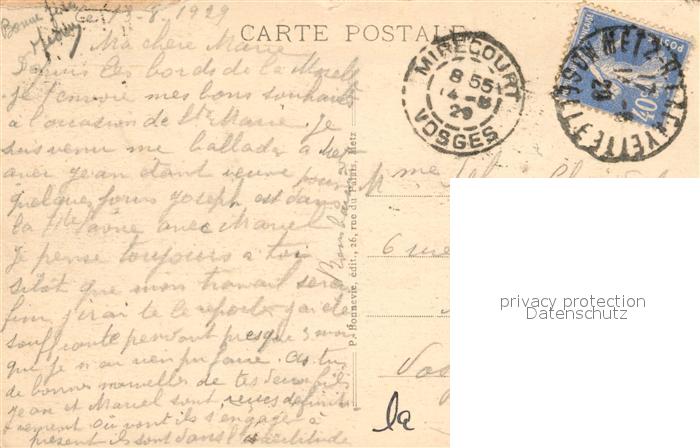 Bonne fête
13-8-1929
CARTE POSTALE
Ma chère Marie
Depuis les bords de la Moselle
je t'envoie mes bons souhaits
à l'occasion de Ste Marie. Je
suis venu me ballader à Metz
avec Jean étant veuve pour
quelques jours Joseph est dans
la Hte avec Marcel
je pense toujours à toi
sitôt que mon travail sera
fini j'irai te le reporter j'ai été
souffrante pendant presque 3 mois
que je n'ai rien pu faire. As tu
de bonnes nouvelles de tes deux fils
Jean et Marcel sont revenus définiti-
vement où vont ils s'engager à
présent ils sont dans l'incertitude
P. Bonnevie, édit., 26, rue du Palais, Metz
MIRECOURT
8 55
14-8
29
VOSGES
METZ
40c
Mme
6 rue
Vos
la
privacy protection
Datenschutz